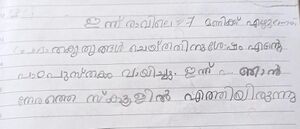 ഇന്ന് രാവിലെ 7 മണിക്ക് എഴുന്നേറ്റു
പ്രാഥമികകൃത്യങ്ങൾ ചെയ്തതിനുശേഷം എന്റെ
പാഠപുസ്തകം വായിച്ചു. ഇന്ന് ഞാൻ
നേരത്തെ സ്കൂളിൽ എത്തിയിരുന്നു